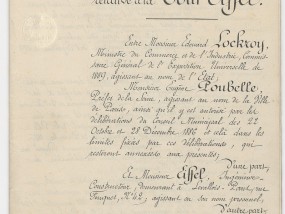 relative à la Tour Eiffel.
Entre Monsieur Edouard Lockroy,
Ministre du Commerce et de l'Industrie, Commis-
saire Général de l'Exposition Universelle de
1889, agissant au nom de l'Etat,
Monsieur Eugène Poubelle,
Préfet de la Seine, agissant au nom de la Ville
de Paris, ainsi qu'il y est autorisé par les
délibérations du Conseil Municipal des 22
Octobre et 28 Décembre 1886 et cela dans les
limites fixées par ces délibérations, qui
resteront annexées aux présentes;
D'une part,
Et Monsieur Eiffel, Ingénieur-
Constructeur, demeurant à Levallois-Perret, rue
Fouquet, N° 42, agissant en son nom personnel,
D'autre part,